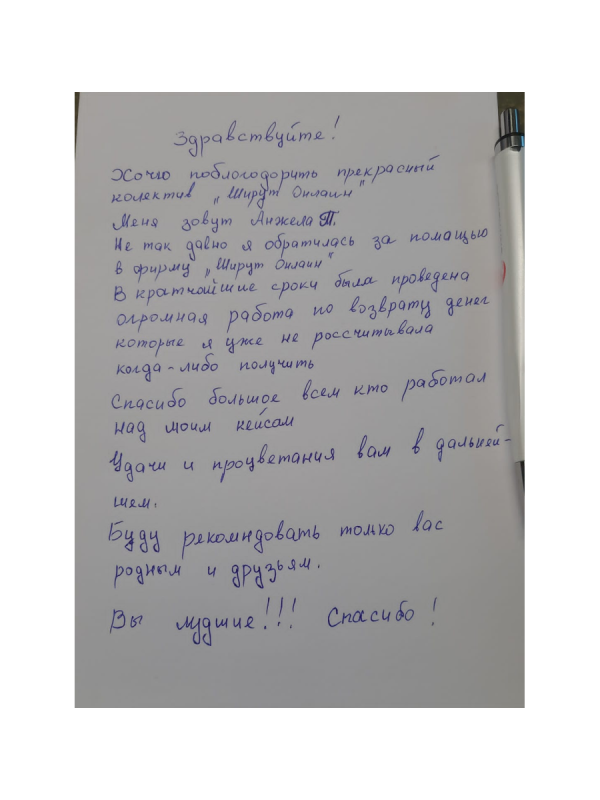 Здравствуйте!
Хочю поблогодорить прекрасный
колектив „Ширут Онлаин"
Меня зовут Анжела П.
Не так давно я обратилась за помащью
в фирму „Ширут Онлаин"
В кратчойшие сроки была проведена
огромная работа по возврату денег
которые я уже не россчитывала
когда-либо получить
Спасибо большое всем кто работал
над моим кейсом
Удачи и процветания вам в дальней-
шем.
Буду рекомндовать только вас
родным и друзьям.
Вы лудшие!!! Спасибо!